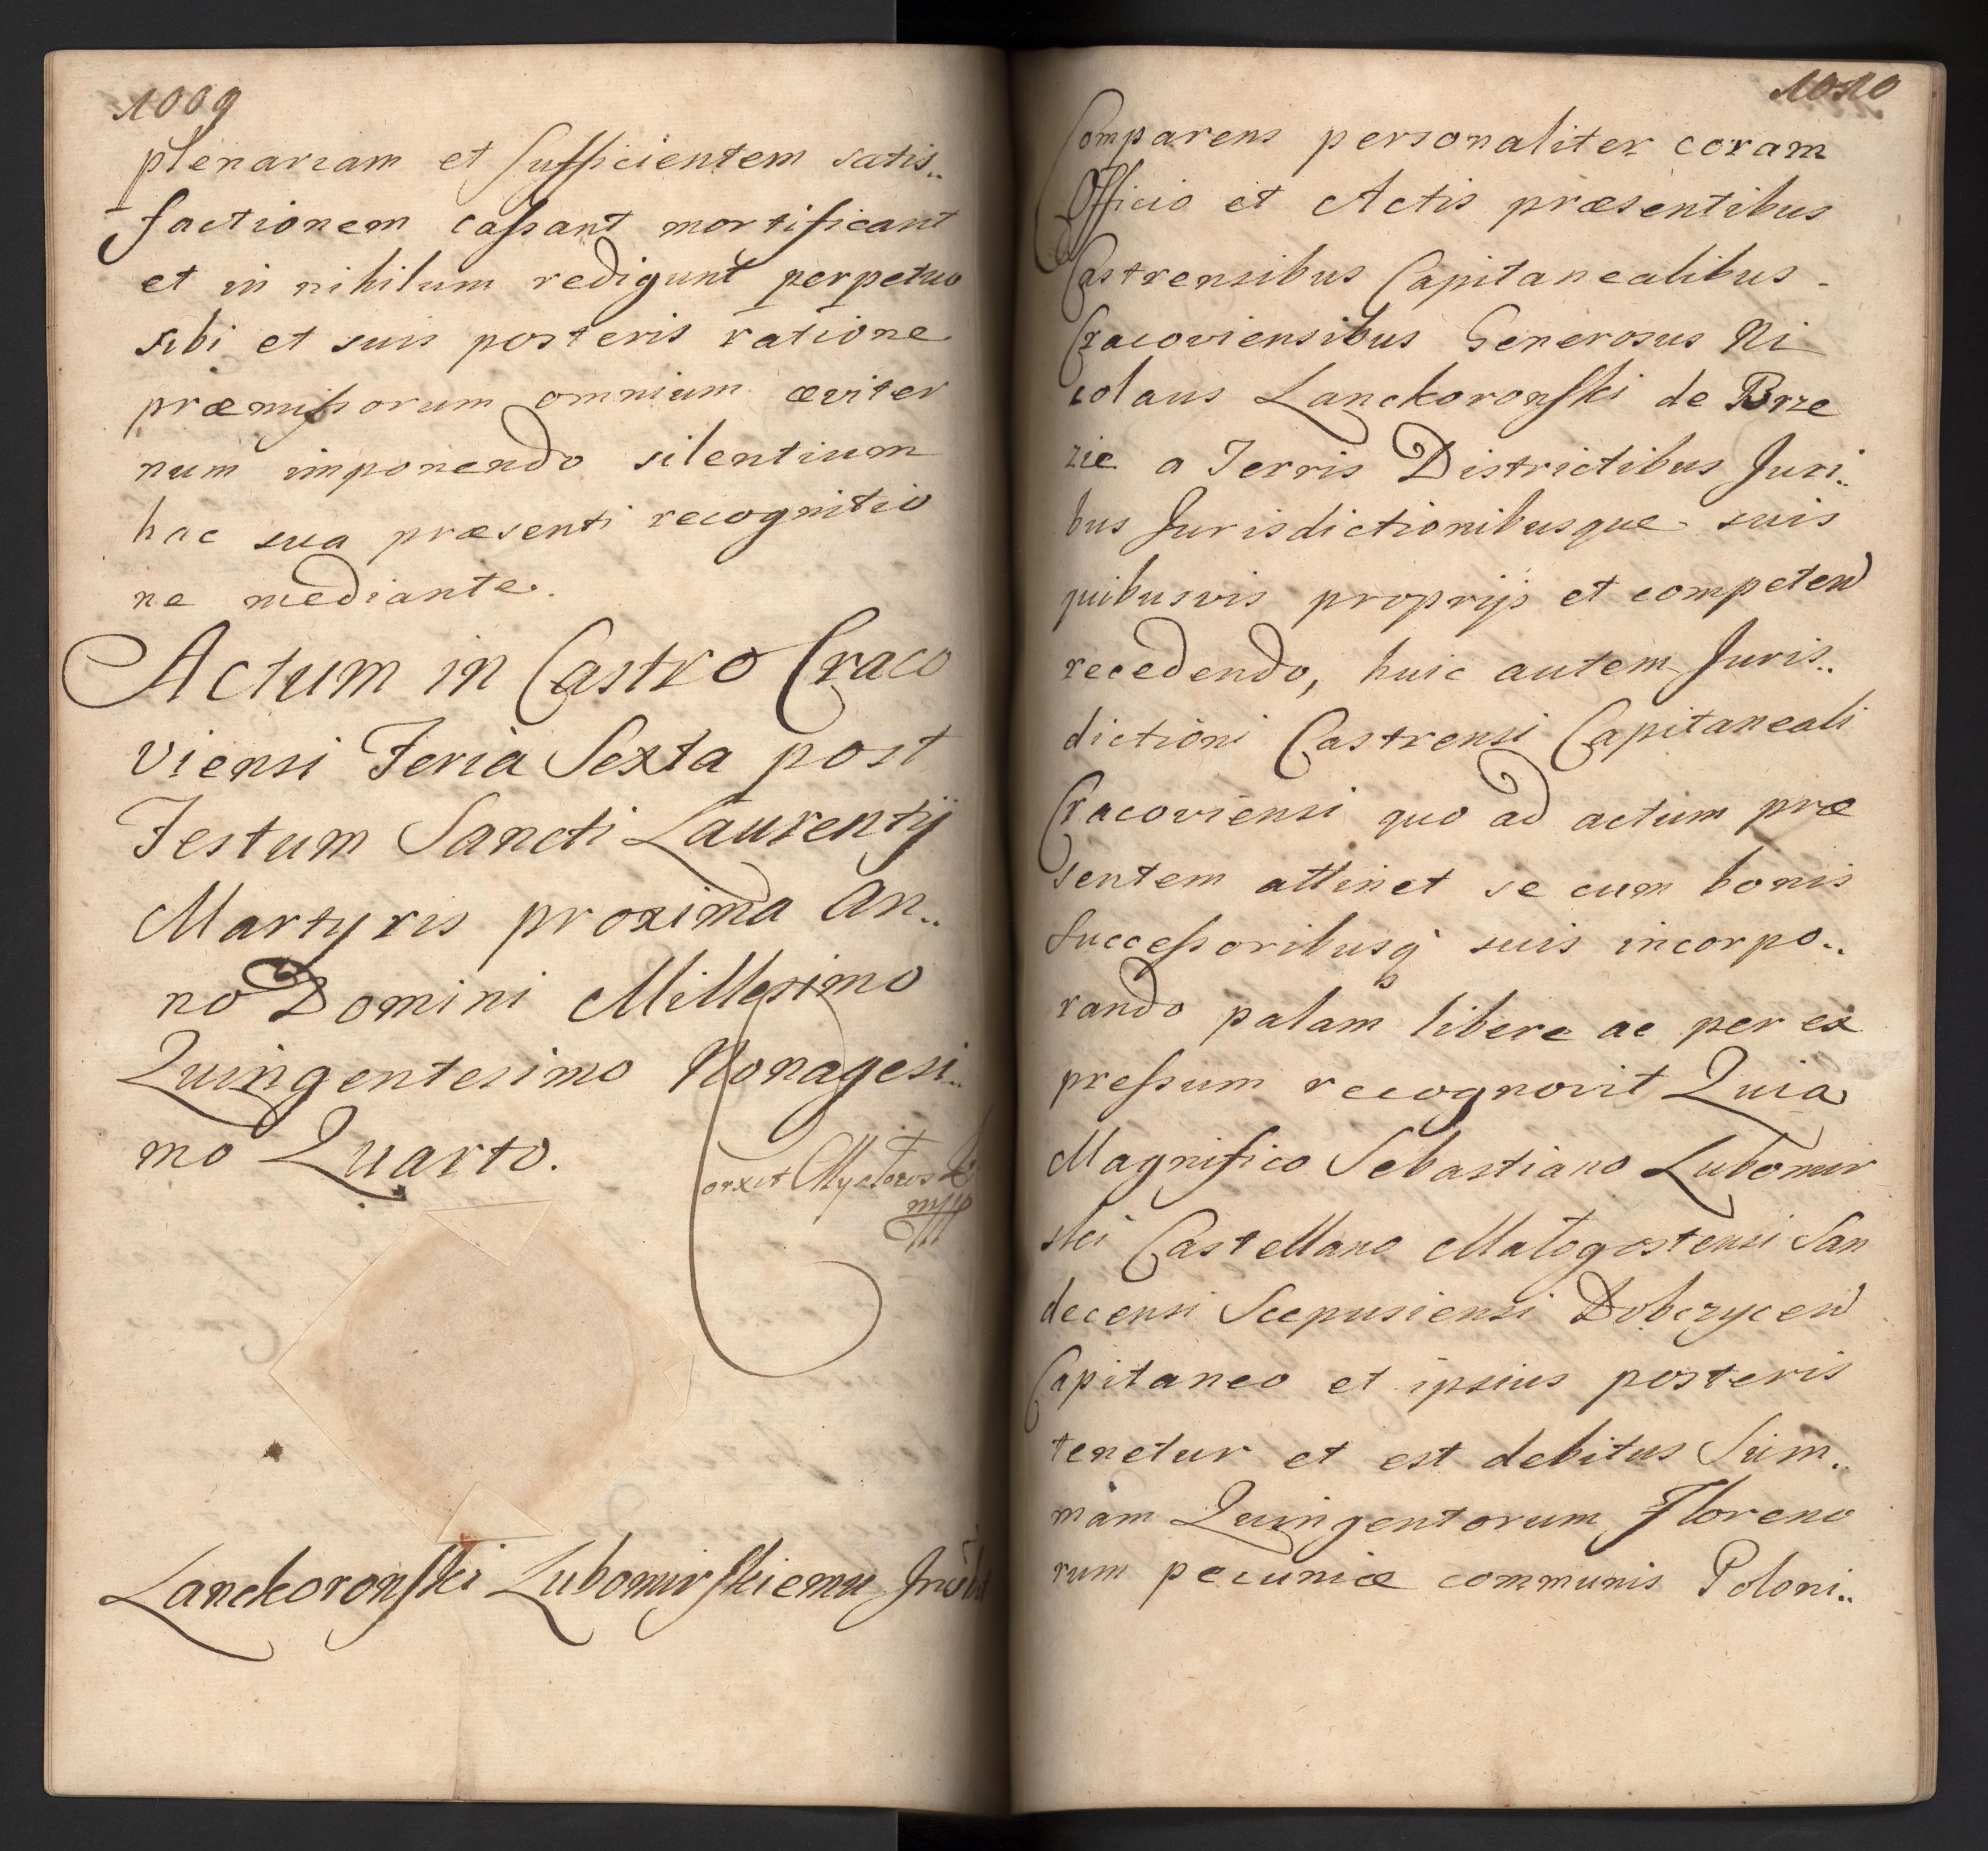 1009
plenariam et sufficientem satis..
factionem cassant mortificant
et in nihilum redigunt perpetuo
sibi et suis posteris ratione
præmissorum omnium æviter
num imponendo silentium
hac sua præsenti recognitio
ne mediante.
Actum in Castro Craco
viensi Feria Sexta post
Festum Sancti Laurentij
Martyris proxima An..
no Domini Millesimo
Quingentesimo Nonagesi..
mo Quarto.
mpp
Lanckoronski Lubomirskiemu
1010
Comparens personaliter coram
Officio et Actis præsentibus
Castrensibus Capitanealibus -
Cracoviensibus Generosus Ni
colaus Lanckoronski de Brze
zie a Terris Districtibus Juri..
bus Jurisdictionibusque suis
quibusvis proprijs et competen
recedendo, huic autem Juris..
dictioni Castrensi Capitaneali
Cracoviensi quo ad actum præ
sentem attinet se cum bonis
Successoribusq suis incorpo..
rando palam libere ac per ex
pressum recognovit Quia
Magnifico Sebastiano Lubomir
ski Castellano Małogostensi San
decensi Scepusiensi Dobczycen
Capitaneo et ipsius posteris
tenetur et est debitus Sum..
mam Quingentorum Floreno
rum pecuniæ communis Poloni..